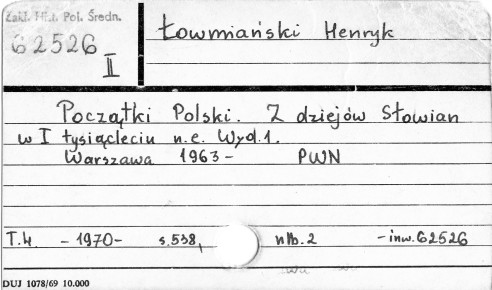 Zakł. Hist. Pol. Średn.
62526
II
Łowmiański Henryk
Początki Polski. Z dziejów Słowian
w I tysiącleciu n.e. Wyd. 1.
Warszawa 1963 - PWN
T.4 - 1970 - s. 538, nlb. 2 - inw. 62526
DUJ 1078/69 10.000